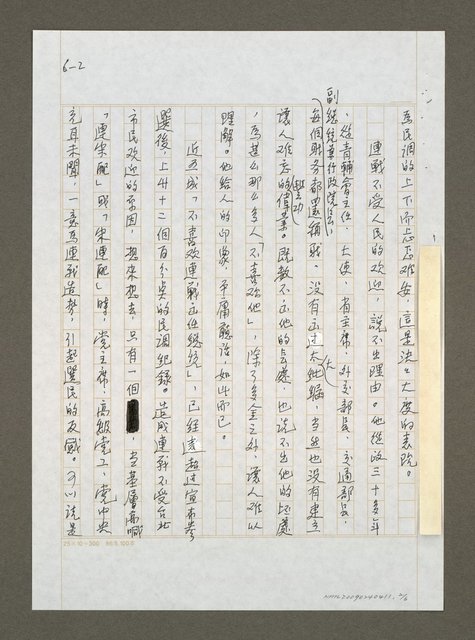 6-2
為民調的上下而忐忑難安，這是泱泱大度的表現。
連戰不受人民的歡迎，說不出理由。他從政三十多年
，從青輔會主任、大使、省主席、外交部長、交通部長、
副總統兼行政院長，
每個財務都還稱職，沒有出過大紕漏，當然也沒有建立
讓人難忘的豐功偉業。既數不出他的長處，也說不出他的壞處
，為甚麼那麼多人「不喜歡他」，除了多金之外，讓人難以
理解。他給人的印象，平庸聽話，如此而已。
近五成「不喜歡連戰出任總統」，已經遠超過宣布參
選後，上升十二個百分點的民調紀錄。造成連戰不受台北
市民歡迎的原因，想來想去，只有一個，當基層高喊
「連宋配」或「宋連配」時，黨主席、高級黨工、黨中央
充耳未聞，一意為連戰造勢，引起選民的反感。可以說是
25×10=300
NMTL20090240411, 2/6